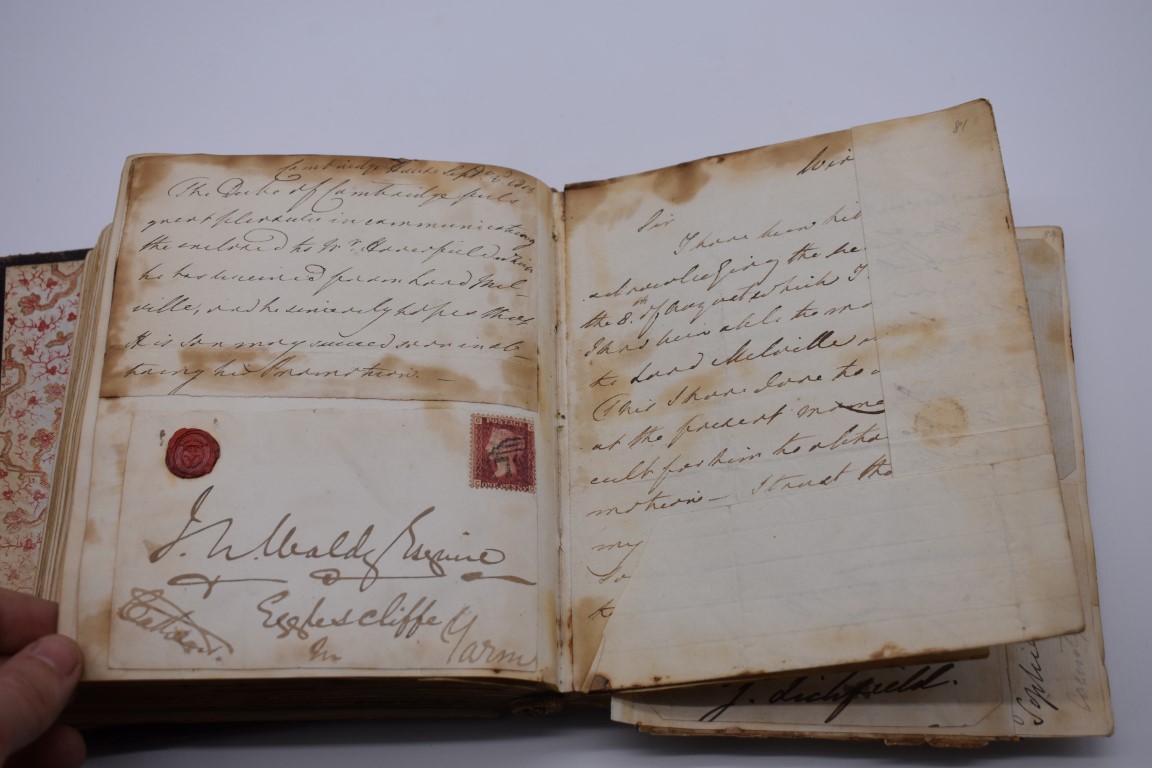 Cambridge House Sept
The Duke of Cambridge feels
great pleasure in communicating
the enclosed to Mr. Haverfield which
he has received from Lord Mel-
ville, and he sincerely hopes that
His son may succeed soon in ob-
taining his Promotion. —
POSTAGE
J. W. Waldy Esquire
Egglescliffe
Yarm
81
Sir
I have been
acknowledging the re
the 8th. of August which I
I had been able to
to Lord Melville
This I have done
at the present mome
cult for him to obta
motion — I trust tha
my
So
J. Lichfield.
Sophi